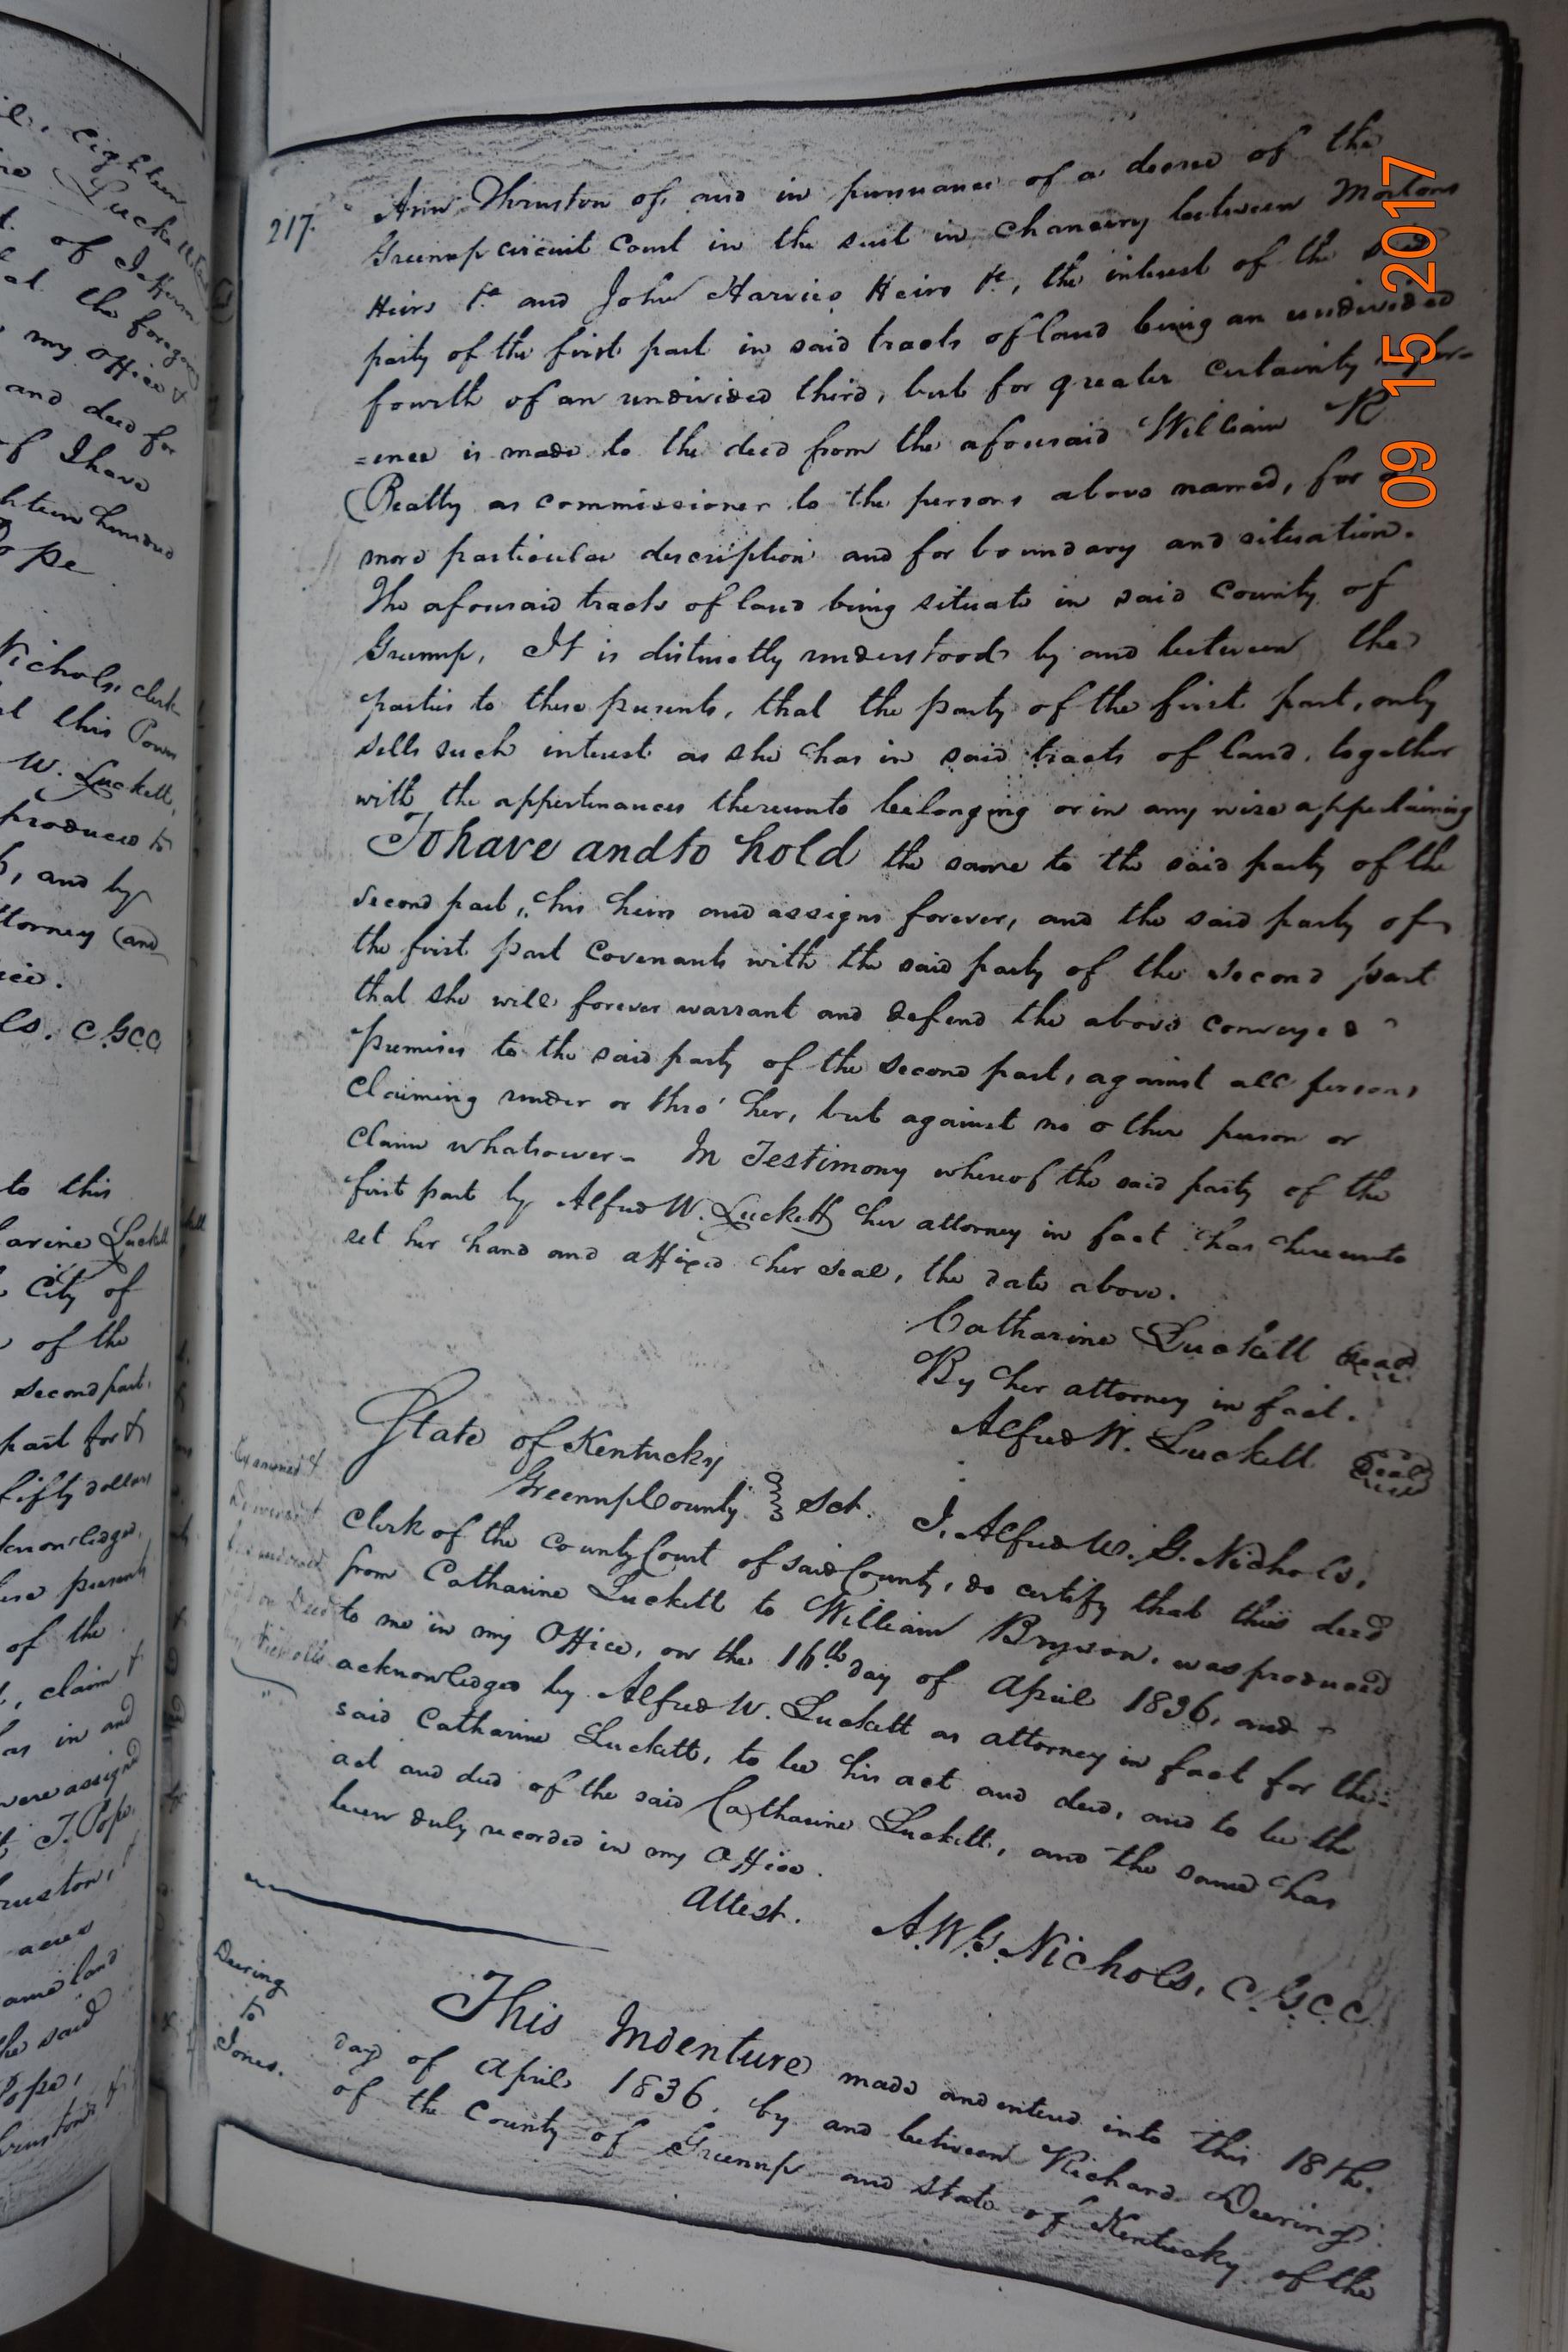 il. Eighteen
Luckett
of Jefferson
the foregoing
my Office &
and deed for
of I have
hteen hundred
Pope
Nichols, clerk
this Power
W. Luckett,
produced to
, and by
ttorney (and
C.G.C.C
to this
arine Luckett
City of
of the
second part,
part for &
fifty dollars
knowledged,
presents
of the
, claim &
as in and
were assigned
J. Pope,
ruston,
acres
same land
the said
Pope,
217.
Ann Thruston of, and in pursuance of a decree of the
Greenup circuit Court in the suit in chancery between Mortons
Heirs &c and John Harvies Heirs &c, the interest of the said
party of the first part in said tracts of land being an undivided
fourth of an undivided third, but for greater certainty refer-
=ence is made to the deed from the aforesaid William R
Beatty as commissioner to the persons above named, for a
more particular description and for boundary and situation.
The aforesaid tracts of land being situate in said County of
Greenup, It is distinctly understood by and between the
parties to these presents, that the party of the first part, only
sells such interest as she has in said tracts of land, together
with the appertinances thereunto belonging or in any wise appertaining
To have and to hold the same to the said party of the
second part, his heirs and assigns forever, and the said party of
the first part Covenants with the said party of the second part
that she will forever warrant and defend the above conveyed
premises to the said party of the second part, against all persons
claiming under or thro' her, but against no other person or
claim whatsoever- In Testimony whereof the said party of the
first part by Alfred W. Luckett her attorney in fact has hereunto
set her hand and affixed her seal, the date above.
Catharine Luckett Seal
By her attorney in fact.
Alfred W. Luckett Seal
State of Kentucky
Greenup County Sct. I, Alfred W. G. Nichols,
clerk of the County Court of said County, do certify that this deed
from Catharine Luckett to William Bryson, was produced
to me in my Office, on the 16th day of April 1836, and
acknowledged by Alfred W. Luckett as attorney in fact for the
said Catharine Luckett, to be his act and deed, and to be the
act and deed of the said Catharine Luckett, and the same has
been duly recorded in my Office.
Attest. A.W.G. Nichols, C.G.C.C.
Examined &
Delivered
Deering
to
Jones.
This Indenture made and entered into this 18th.
day of April 1836, by and between Richard Deering
of the County of Greenup and State of Kentucky of the
09 15 2017